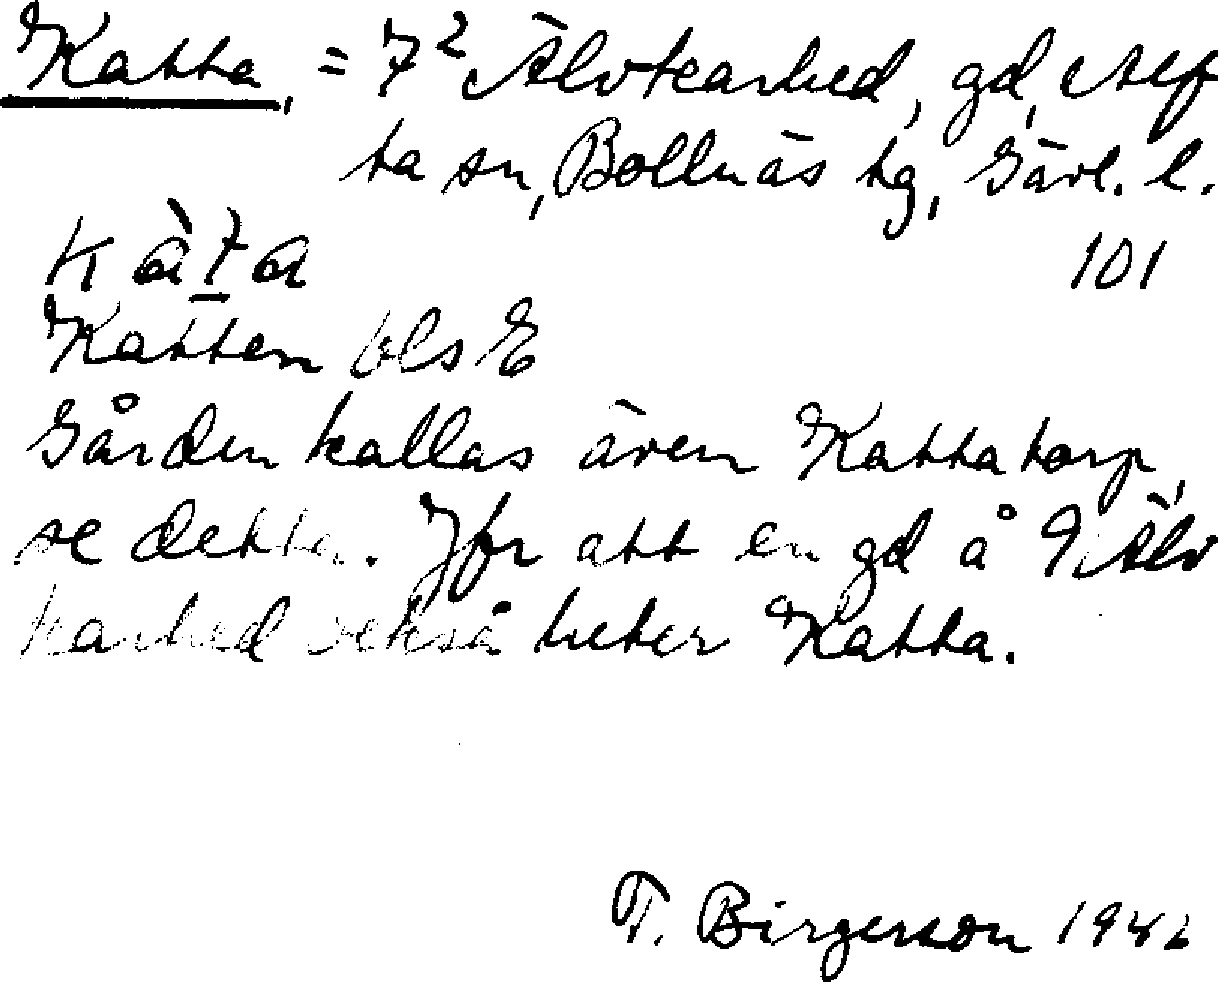 Katta, = 7² Älvkarhed, gd, Alf
ta sn, Bollnäs tg, Gävl. l.
kàta 101
Katten bls E
Gården kallas även Kattatorp,
se detta. Jfr att en gd å 9 Älv
karhed också heter Katta.
T. Birgerson 1942